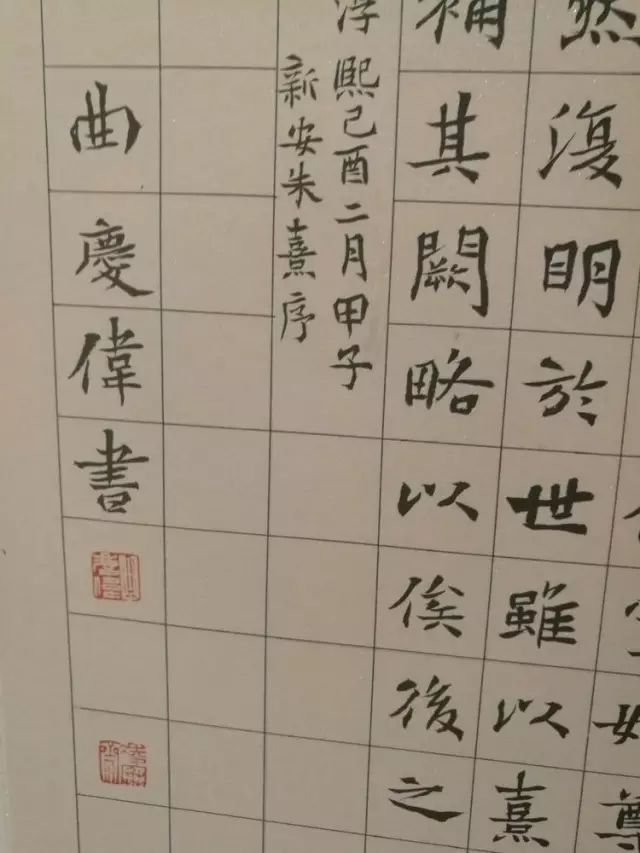 尊
然復明於世雖以熹
補其闕略以俟後之
淳熙己酉二月甲子
新安朱熹序
曲慶偉書